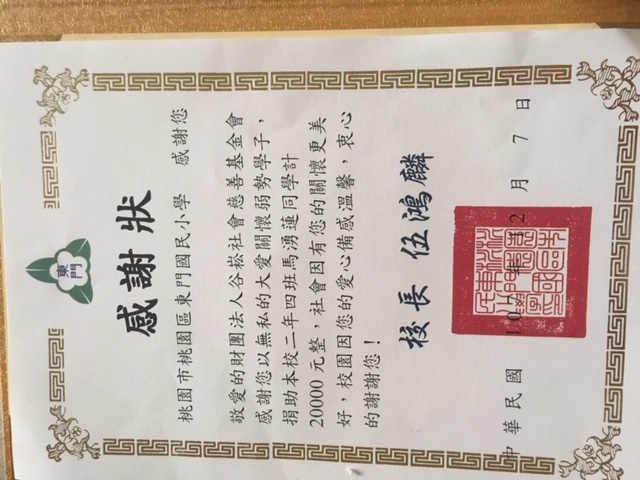 東門
感謝狀
桃園市桃園區東門國民小學 感謝您
敬愛的財團法人谷崧社會慈善基金會
感謝您以無私的大愛關懷弱勢學子，
捐助本校二年四班馬湧蓮同學計
20000 元整，社會因有您的關懷更美
好，校園因您的愛心備感溫馨，衷心
的謝謝您！
校長 伍鴻麟
中華民國 107 年 12 月 7 日